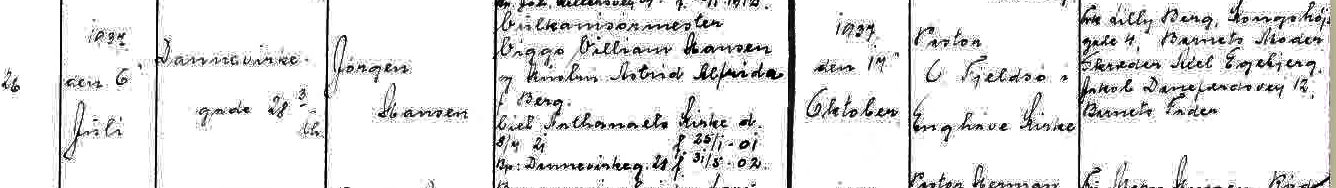 26
1937
den 6'
Juli
Dannevirke-
gade 28 3
th.
Jørgen
Hansen
Vulkanisørmester
Viggo Villiam Hansen
og Hustru Astrid Alfrida
f. Berg.
Viet Nathanaels Kirke d.
f 25/1-01
Bp: Dannevirkeg 28 f 31/5-02
1937
den 17'
Oktober
Pastor
C Fjeldsø i
Enghave Kirke
Frk Lilly Berg, Kongshøj-
gade 4, Barnets Moder
Skræder Axel Egebjerg,
Jakob Danefærdsvej 12,
Barnets Fader
Pastor Herman